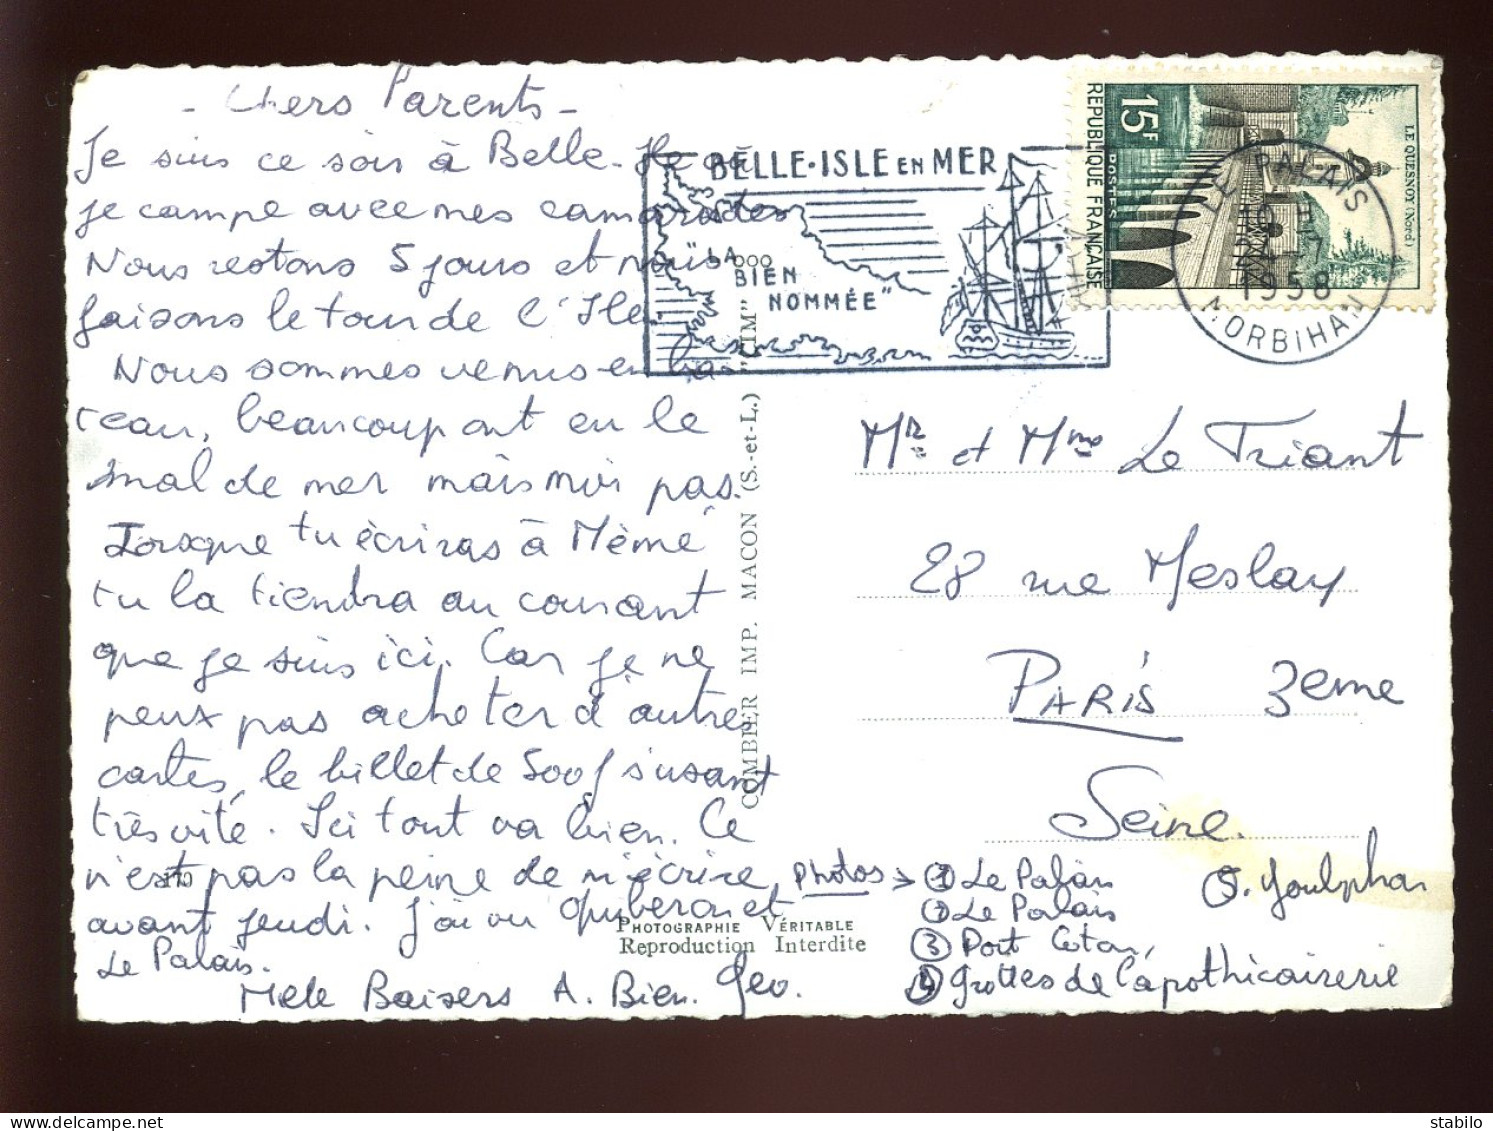 - Chers Parents -
Je suis ce soir à Belle-Ile où
je campe avec mes camarades
Nous restons 5 jours et nous
faisons le tour de l'Ile.
Nous sommes venus en ba-
teau, beaucoup ont eu le
mal de mer mais moi pas.
Lorsque tu écriras à Mémé
tu la tiendra au courant
que je suis ici. Car je ne
peux pas acheter d'autre
cartes, le billet de 500f s'usant
très vite. Ici tout va bien. Ce
n'est pas la peine de m'écrire
avant jeudi. J'ai vu Quiberon et
Le Palais.
Mele Baisers A. Bien. Geo.
BELLE-ISLE EN MER
"LA
BIEN
NOMMÉE"
15F
POSTES
REPUBLIQUE FRANÇAISE
LE QUESNOY (Nord)
LE PALAIS
1958
MORBIHAN
COMBIER IMP. MACON (S.-et-L.) "CIM"
Mr et Mme Le Triant
28 rue Meslay
PARIS 3eme
Seine.
PHOTOGRAPHIE VÉRITABLE
Reproduction Interdite
Photos > ① Le Palais
Le Palais
③ Port Coton,
④ grottes de l'apothicairerie
⑤. Goulphar
Delcampe.net
stabilo